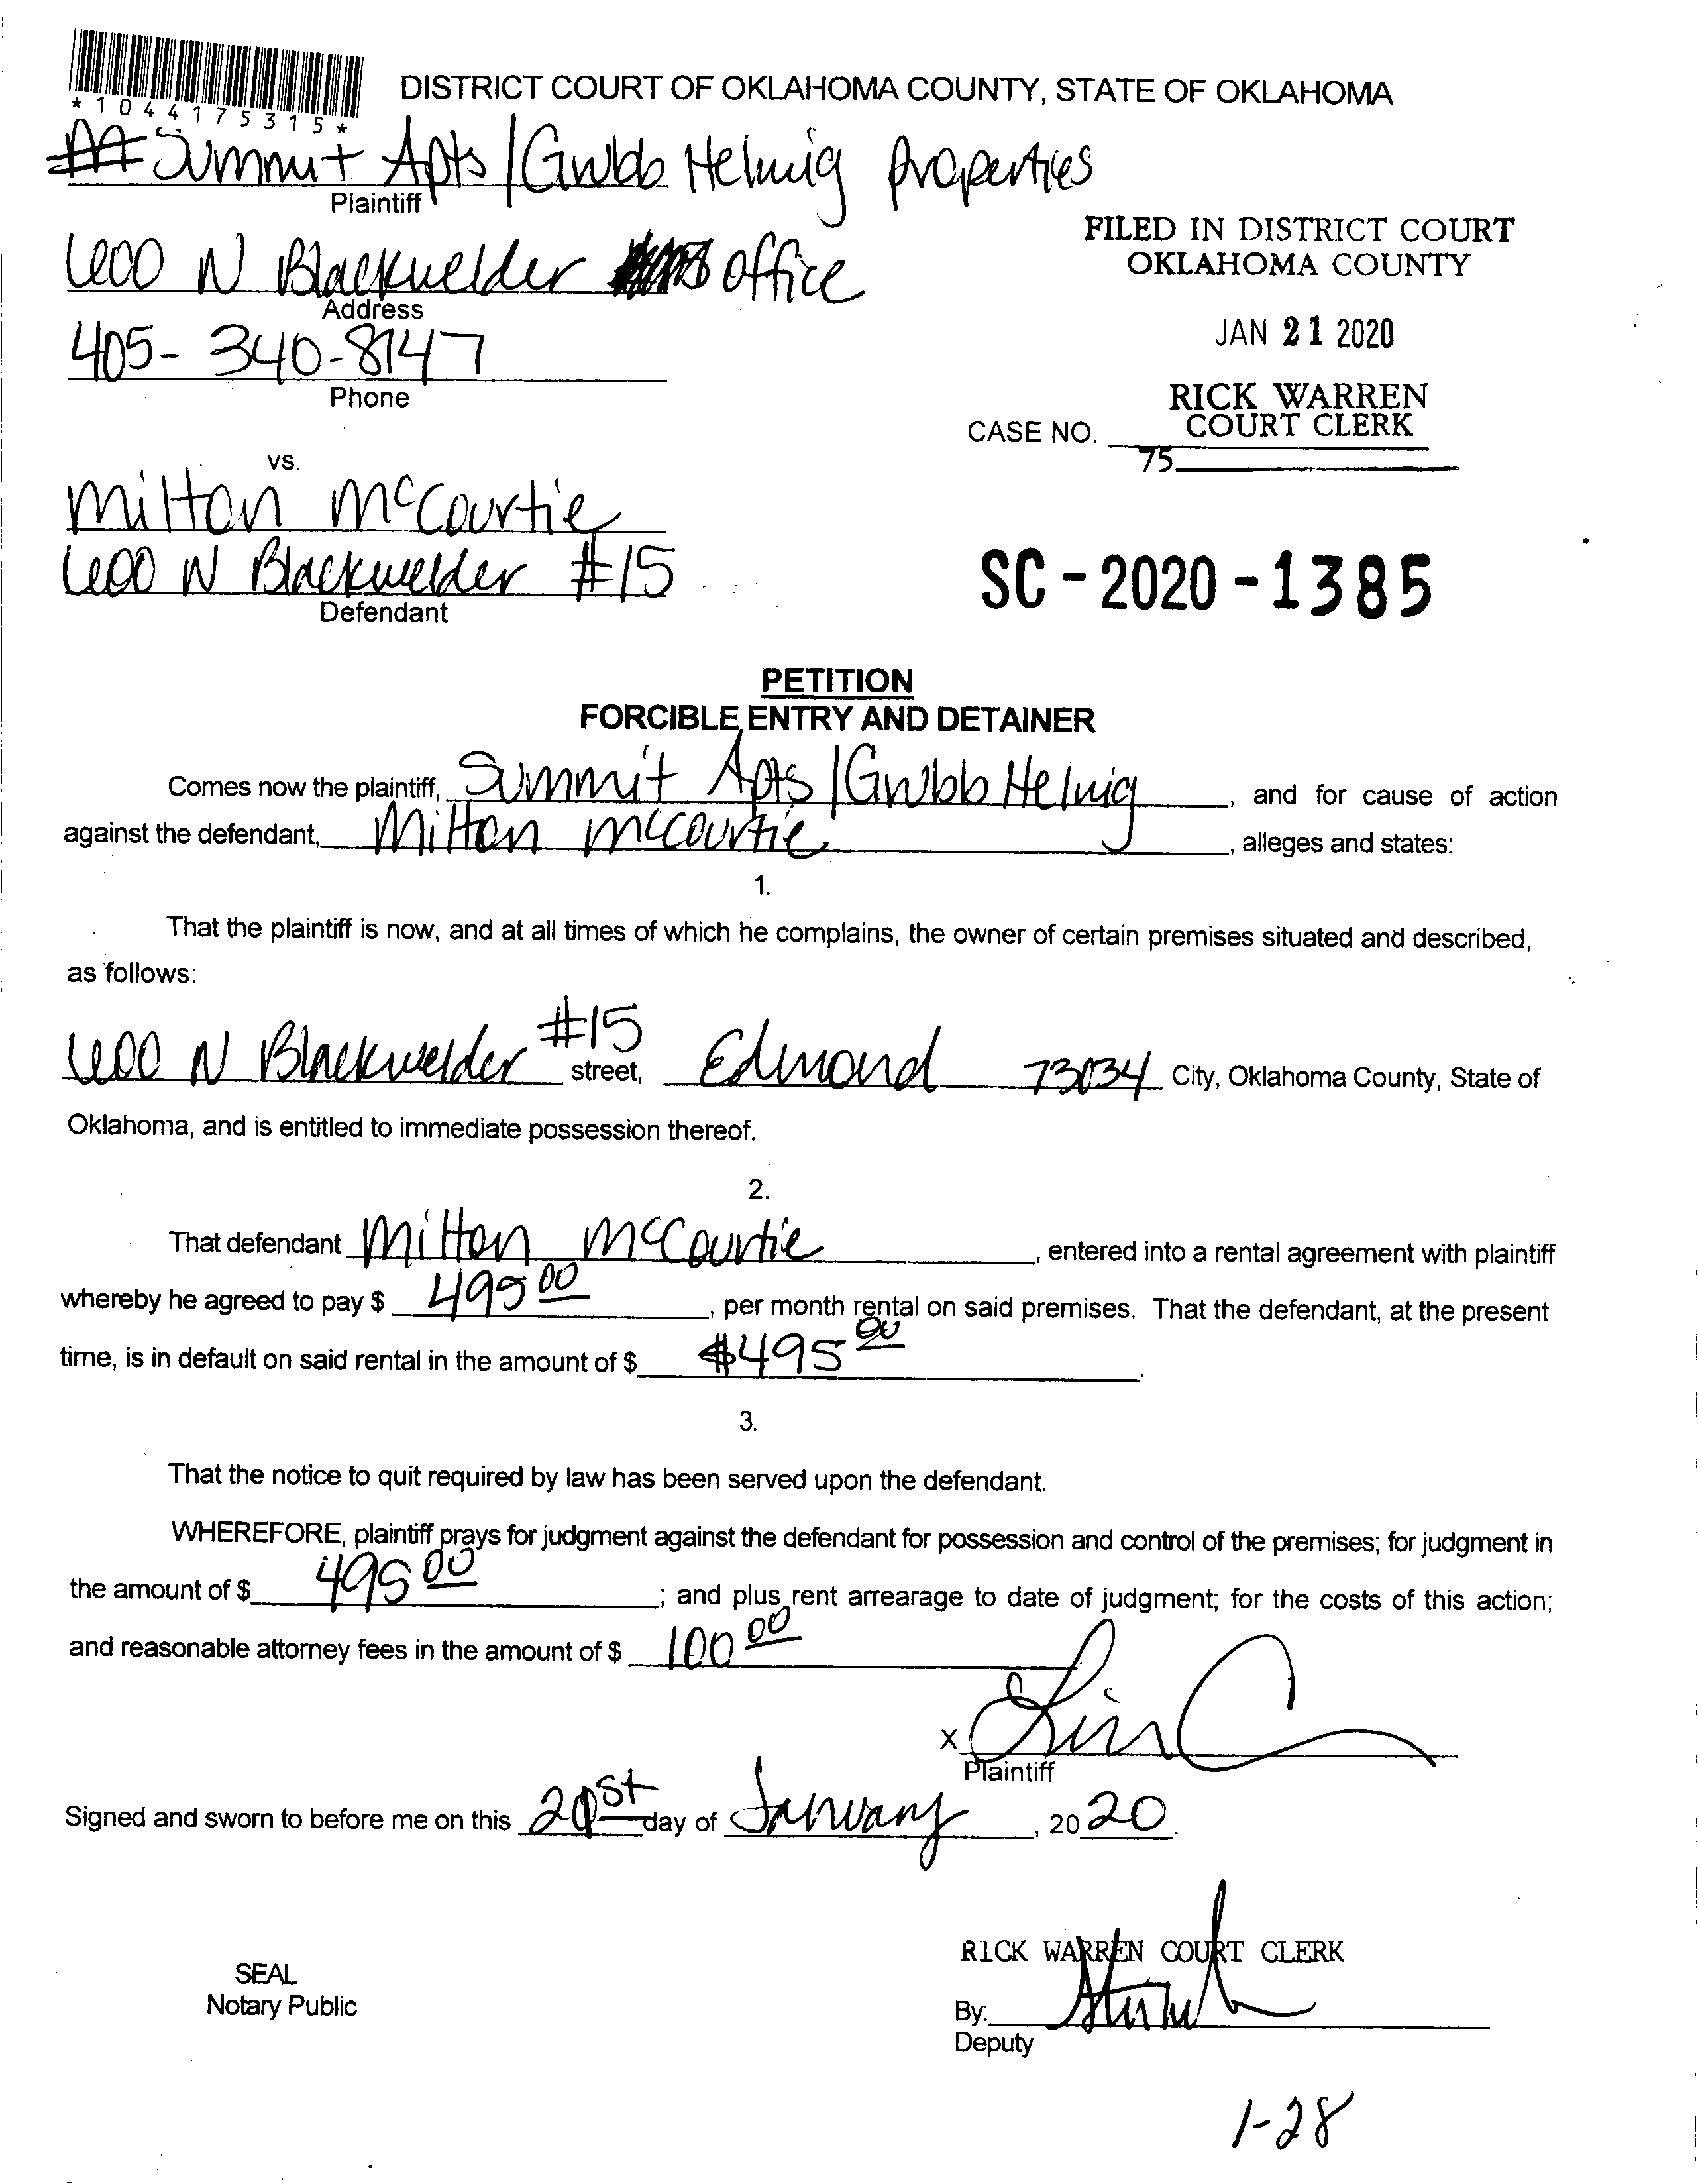 *1044175315*
DISTRICT COURT OF OKLAHOMA COUNTY, STATE OF OKLAHOMA
Summit Apts / Gwbb Helmig Properties
Plaintiff
600 N Blackwelder office
Address
405-340-8147
Phone
FILED IN DISTRICT COURT
OKLAHOMA COUNTY
JAN 21 2020
RICK WARREN
COURT CLERK
CASE NO.
75
vs.
Milton McCourtie
600 N Blackwelder #15
Defendant
SC-2020-1385
PETITION
FORCIBLE ENTRY AND DETAINER
Comes now the plaintiff, Summit Apts / Gwbb Helmig, and for cause of action
against the defendant, Milton McCourtie, alleges and states:
1.
That the plaintiff is now, and at all times of which he complains, the owner of certain premises situated and described,
as follows:
600 N Blackwelder #15 street, Edmond 73034 City, Oklahoma County, State of
Oklahoma, and is entitled to immediate possession thereof.
2.
That defendant Milton McCourtie, entered into a rental agreement with plaintiff
whereby he agreed to pay $ 495 00, per month rental on said premises. That the defendant, at the present
time, is in default on said rental in the amount of $ $495 00.
3.
That the notice to quit required by law has been served upon the defendant.
WHEREFORE, plaintiff prays for judgment against the defendant for possession and control of the premises; for judgment in
the amount of $ 495 00; and plus rent arrearage to date of judgment; for the costs of this action;
and reasonable attorney fees in the amount of $ 100 00
X
Plaintiff
Signed and sworn to before me on this 21st day of January, 20 20.
RICK WARREN COURT CLERK
SEAL
Notary Public
By:
Deputy
1-28